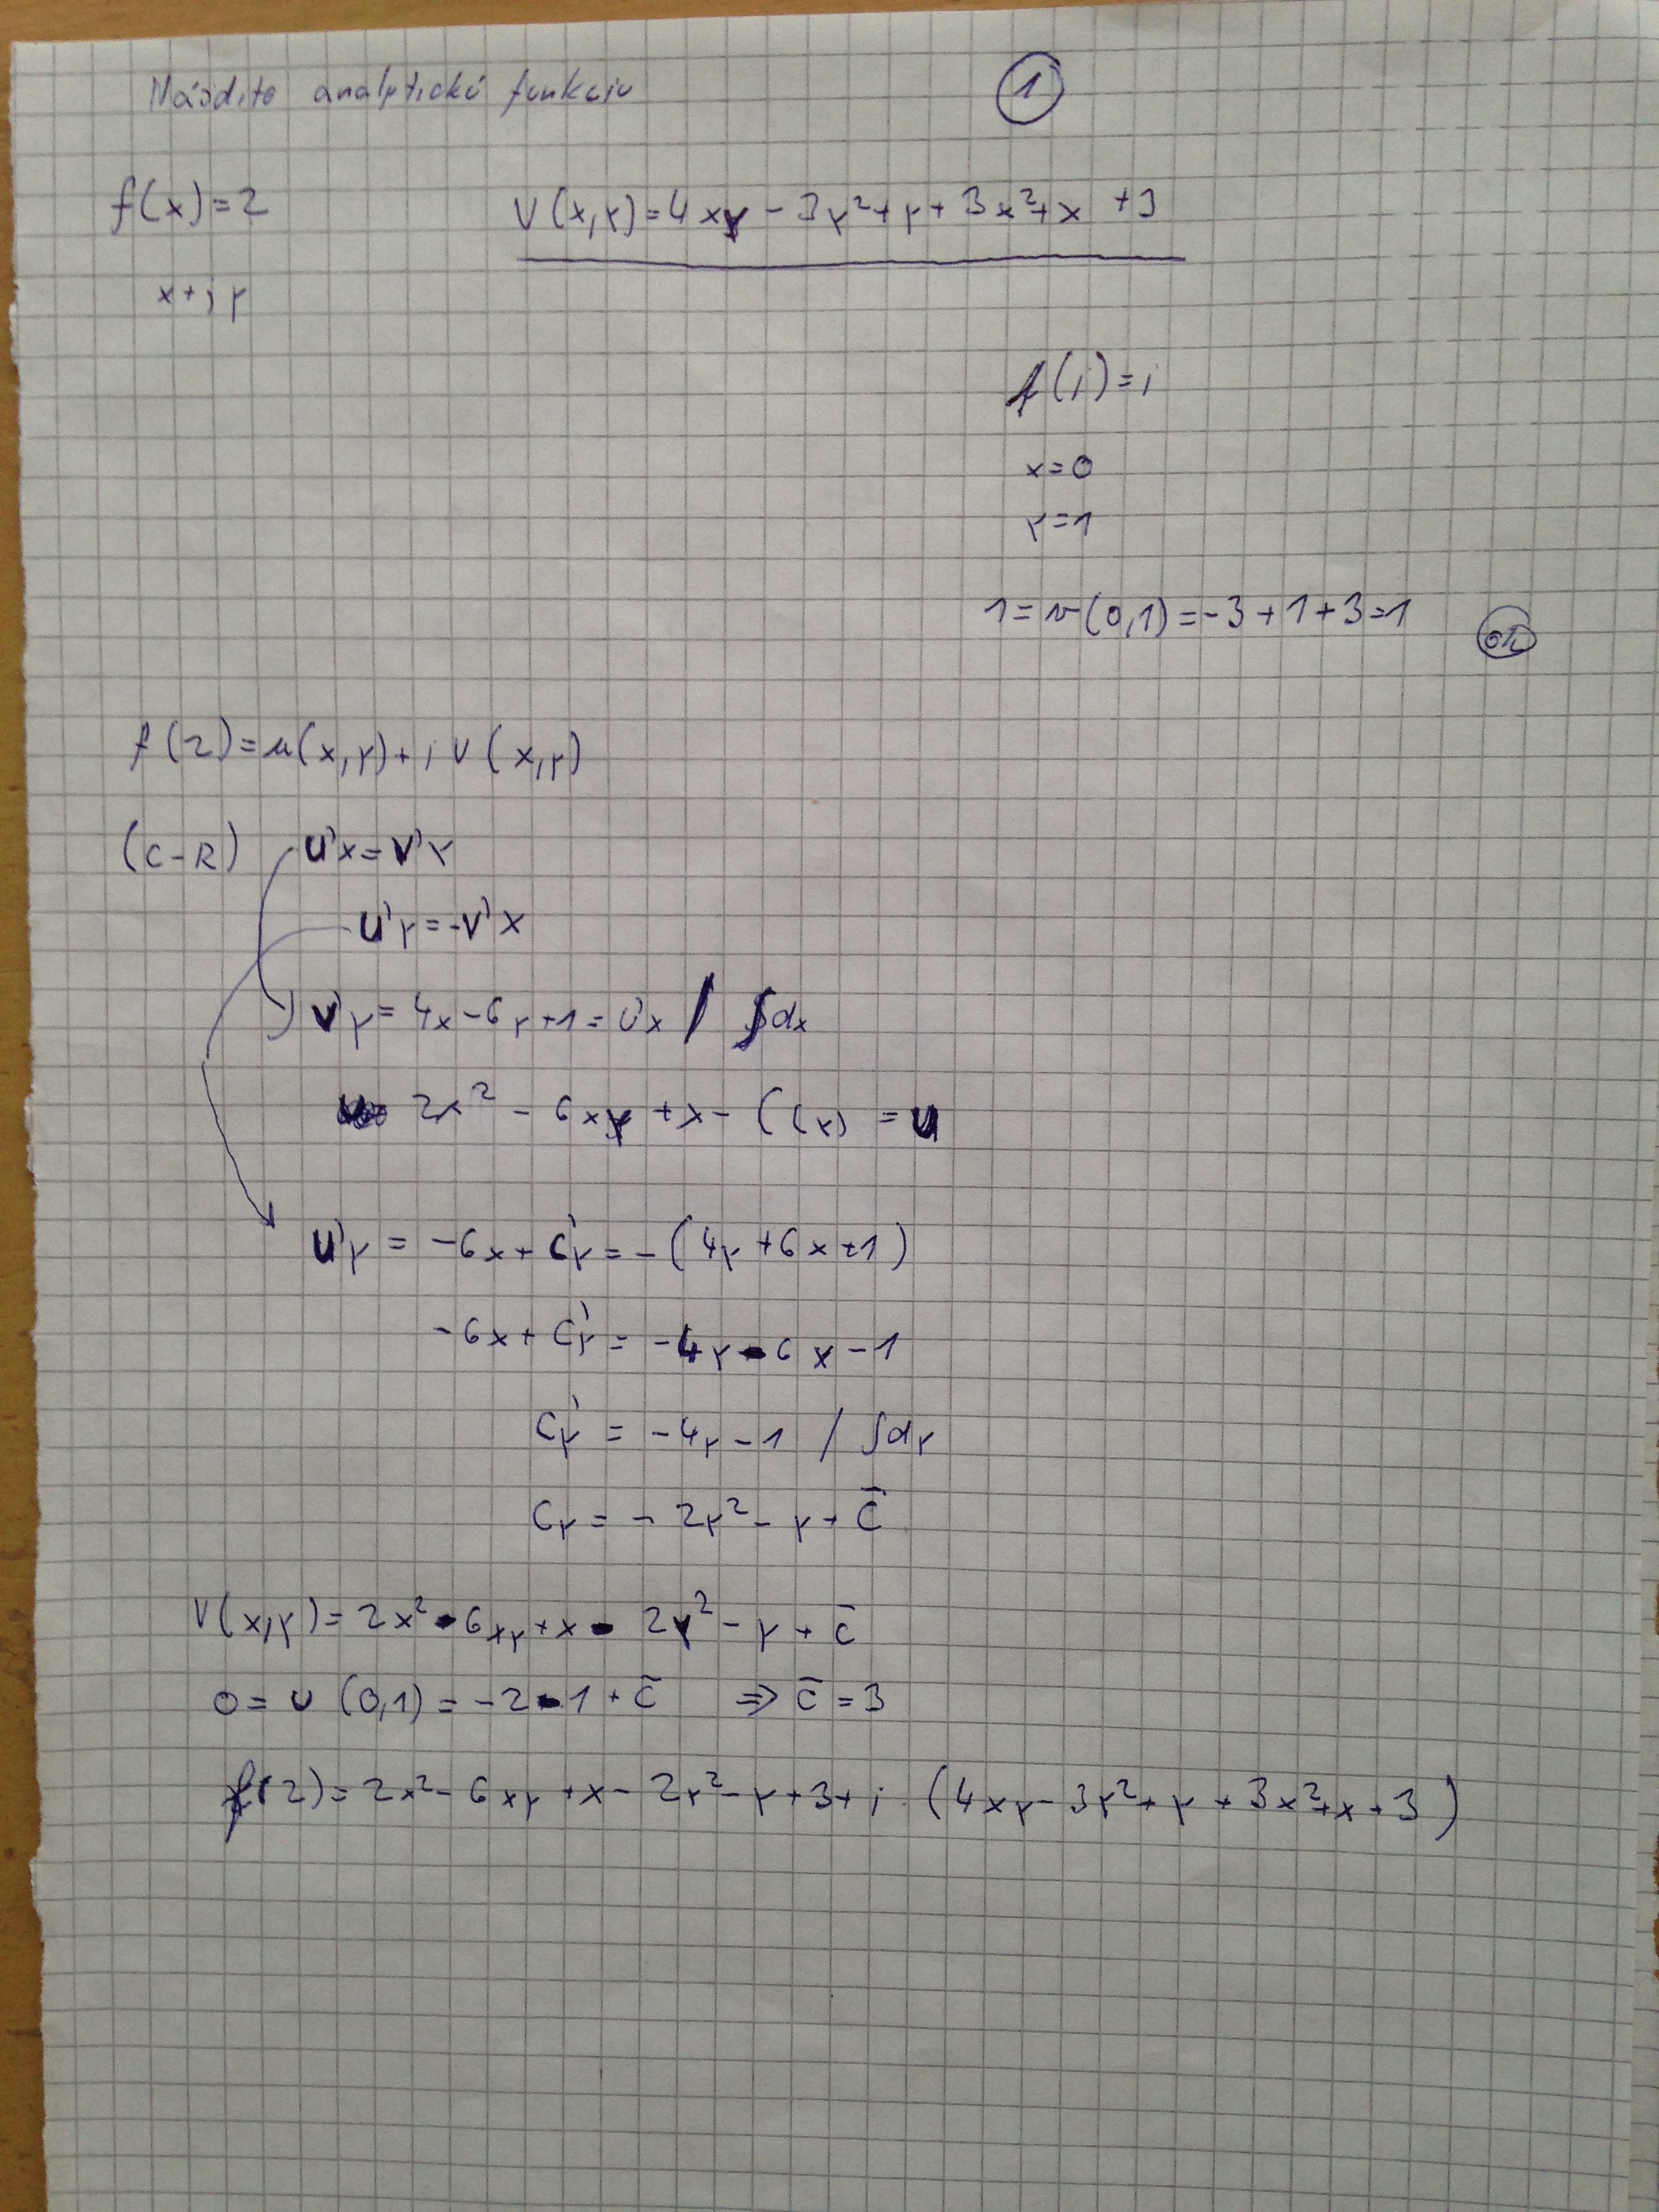 Nájdite analytickú funkciu
1
f(x)=2
V(x,y)=4xy-3y²+y+3x²+x +3
x+iy
f(i)=i
x=0
y=1
1=v(0,1)=-3+1+3=1
ok
f(z)=u(x,y)+i v(x,y)
(C-R) u'x=v'y
u'y=-v'x
v'y=4x-6y+1=u'x / ∫dx
2x²-6xy+x-C(y)=u
u'y=-6x+c'y=-(4y+6x+1)
-6x+c'y=-4y-6x-1
c'y=-4y-1 / ∫dy
cy=-2y²-y+c̄
V(x,y)=2x²-6xy+x-2y²-y+c̄
0=u(0,1)=-2-1+c̄ ⇒ c̄=3
f(z)=2x²-6xy+x-2y²-y+3+i.(4xy-3y²+y+3x²+x+3)